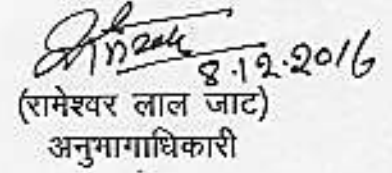 8.12.2016
(रामेश्वर लाल जाट)
अनुभागाधिकारी